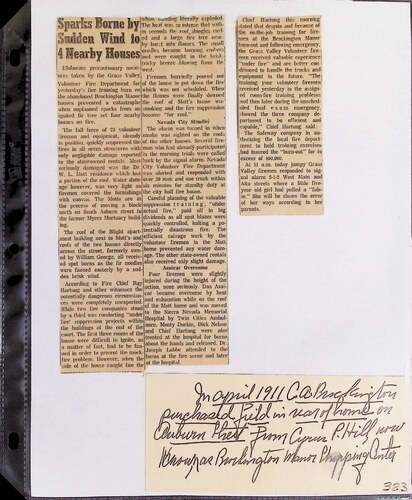 Sparks Borne by
Sudden Wind to
4 Nearby Houses
Elaborate precautionary moves
were taken by the Grass Valley
Volunteer Fire Department for
yesterday's fire training burn on
the abandoned Brackington Manor
houses prevented a catastrophe
when unplanned sparks from an
ignited fire set four nearby
houses on fire.
The full force of 75 volunteer
firemen and equipment, already
in position, quickly suppressed the
fires in all seven structures with
only negligible damage reported
to the state-owned rentals. Most
seriously damaged was the Dr.
W. L. Mott residence which lost
a portion of the roof. Water damage
however, was very light as
firemen covered the furnishings
with canvas. The Motts are in
the process of moving a block
north on South Auburn street to
the former Myers Mortuary building.
The roof of the Blight apartment
building next to Mott's and
roofs of the two houses directly
across the street, formerly owned
by William George, all received
spot burns as the fir needles
were fanned easterly by a sudden
brisk wind.
According to Fire Chief Ray
Hartung and other witnesses the
potentially dangerous circumstances
were completely unexpected.
While two fire companies stood
by a third was conducting "under
fire" suppression projects within
the buildings at the end of the
court. The first three rooms of the
house were difficult to ignite, as
a matter of fact, had to be fanned
in order to present the mock
fire problem. However, when the
side of the house caught fire the
whole building literally exploded.
The heat was so intense that within
seconds the roof, shingles, curled
and a large fire tree nearby
burst into flames. The small
needles became burning embers
and were caught in the brisk
breeze blowing from the
Firemen hurriedly poured out
of the house to put down the fire
which was not scheduled. When
the firemen were finally doused
the roof of Mott's home was
smoking and the fire suppression
became "for real."
Nevada City Standby
The alarm was turned in when
smoke was sighted on the roofs
of the other houses. Several firemen
who had already participated
in the morning trials were called
back by the signal alarm. Nevada
City Volunteer Fire Department
was alerted and responded with
over 20 men and one truck within
minutes for standby duty at
the city hall fire house.
Careful planning of the valuable
suppression training, "under
actual fire," paid off in big
dividends as all spot blazes were
quickly controlled, halting a potentially
disastrous fire. The
efficient salvage work by the
volunteer firemen in the Mott
home prevented any water damage.
The other state-owned rentals
also received only slight damage.
Amicar Overcome
Four firemen were slightly
injured during the height of the
action, none seriously. Dan Amicar
became overcome by heat
and exhaustion while on the roof
of the Mott home and was moved
to the Sierra Nevada Memorial
Hospital by Twin Cities Ambulance.
Monty Durkin, Dick Nelson
and Chief Hartung were also
treated at the hospital for burns
about the hands and released. Dr.
Joseph Lubbe attended to the
burns at the fire scene and later
at the hospital.
Chief Hartung this morning
stated that despite and because of
the on-the-job training for firemen
at the Brackington Manor
burn-out and following emergency,
the Grass Valley Volunteer firemen
received valuable experience
"under fire" and are better conditioned
to handle the trucks and
equipment in the future. "The
training your volunteer firemen
received yesterday in the assigned
room-fire training problems
and then later during the unscheduled
roof area emergency,
showed the three company department
to be efficient and
capable," Chief Hartung said.
The Safeway company in authorizing
the local fire department
to hold training exercises
had insured the "burn-out" for in
excess of 400,000.
At 11 a.m. today jumpy Grass
Valley firemen responded to signal
alarm 5-1-3 West Main and
Alta streets where a little five-year-old
girl had pulled a "false-in."
She will be shown the error
of her ways according to her
parents.
In April 1911 C A Brockington
purchased field in rear of home on
Auburn Street from Cyrus P. Hill, now
known as Brockington Manor Shopping Center
323